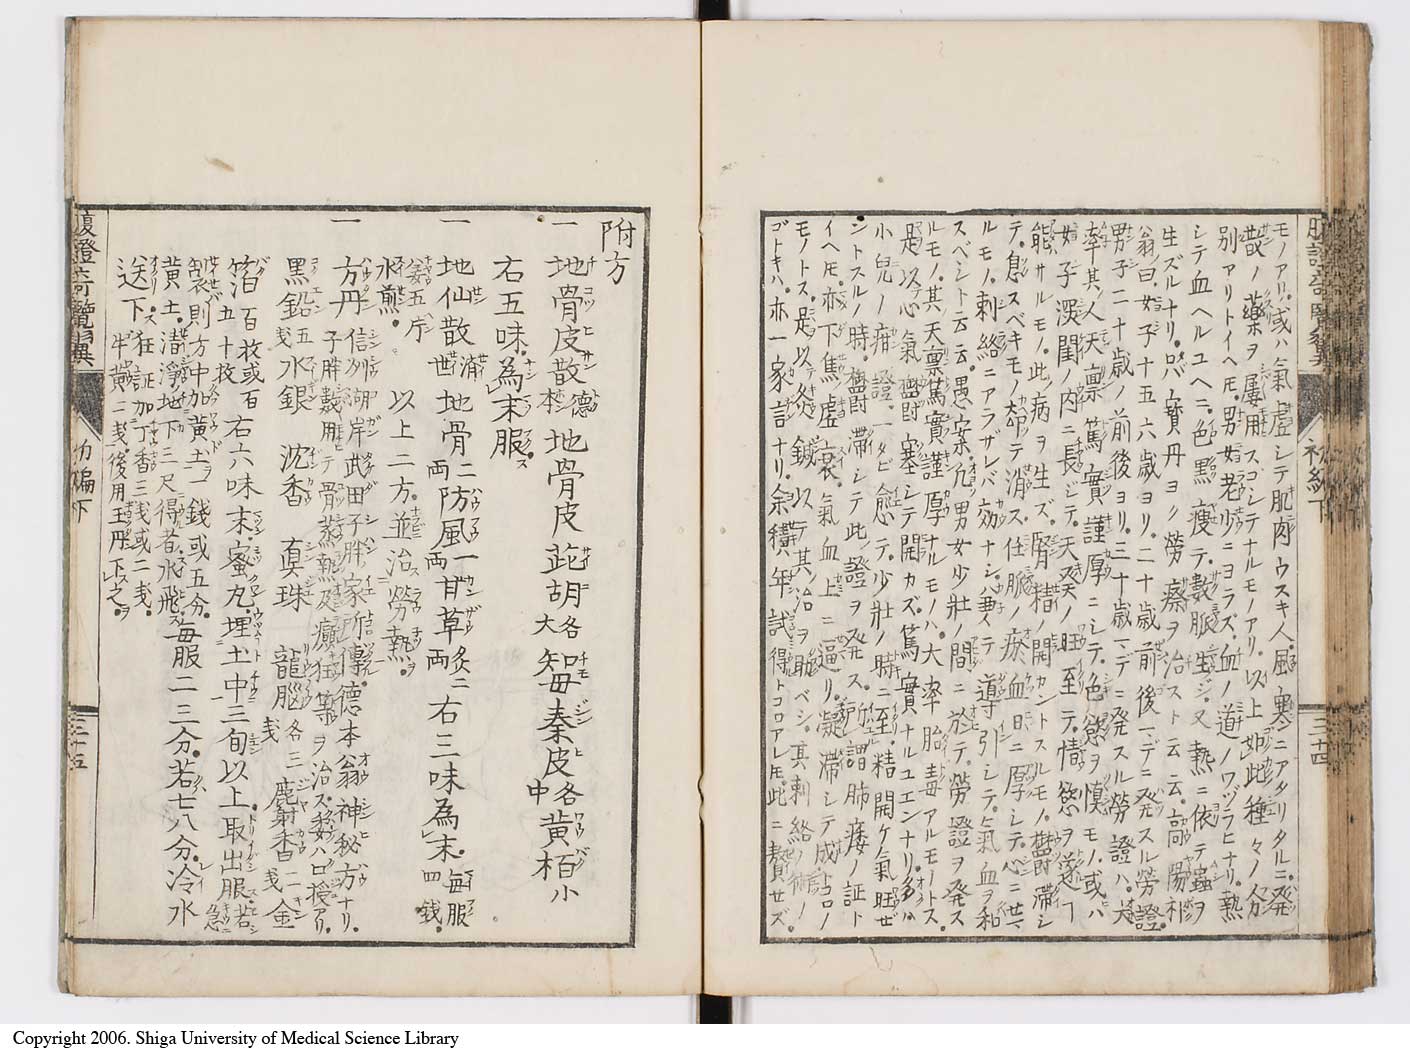 モノアリ。或ハ氣虛シテ肌肉ウスキ人。風寒ニアタリタルニ。発
散ノ藥ヲ屢用スゴシテナルモノアリ。以上如此種々ノ分
別アリトイヘモ。男女老少ニヨラズ。血ノ道ノワヅラヒナリ。熱
シテ血ヘルユヘニ。色黒痩テ。數脈生ジ。又熱ニ依テ蟲ヲ
生ズルナリ。
翁曰。女子十五六歳ヨリ。二十歳前後マデニ発スル勞證。
男子二十歳ノ前後ヨリ。三十歳マデニ発スル勞證ハ。大
率其人天禀篤實謹厚ニシテ。色慾ヲ慎モノ。或ハ
女子深閨ノ内ニ長ジテ。天癸ノ旺至テ。情慾ヲ遂ルヿ
能サルモノ。此病ヲ生ズ。腎精ノ開カントスルモノ。鬱滞シ
テ。息スベキモノ却テ消ス。任脈ノ瘀血日ニ厚シテ心ニセマ
ルモノ。刺絡ニアラザレバ効ナシ。兼テ導引シテ。氣血ヲ和
スベシト云云。愚案凢男女少壯ノ間ニ於テ。勞證ヲ発ス
ルモノ。其天禀篤實謹厚ナルモノハ。大率胎毒アルモノトス
是以心氣鬱塞シテ開カズ。篤實ナルユエンナリ。多ハ
小兒ノ疳證。一タビ愈テ。少壯ノ時ニ至。精開ケ氣旺ゼ
ントスルノ時。鬱滞シテ此證ヲ発ス。所謂肺痿ノ証ト
イヘモ。亦下焦虛衰。氣血上ニ逼リ。凝滞シテ成トコロノ
モノトス。是以灸鍼以テ其治ヲ助ベシ。其刺絡ノ術ノ
ゴトキハ。亦一家言ナリ。余積年試得トコロアレモ。此ニ贅セズ。
腹證奇覽翼
初編下
三十四
附方
一 地骨皮散 德本 地骨皮 茈胡各大 知母 秦皮各中 黄栢小
右五味。為末服。
一 地仙散 濟世 地骨二両 防風一両 甘草炙二 右三味為末。毎服四錢。
姜五片
水煎。 以上二方。並治勞熱。
一 方丹 信列湖岸武田子胖家所傳。德本翁神秘方ナリ。
子胖數用テ骨蒸熱及癲狂等ヲ治ス。
黒鉛五戔 水銀 沈香 真珠 龍腦各三戔 麝香一戔 金
箔百枚或百五十枚 右六味末。蜜丸。埋土中三旬以上。取出服。若急
製。則方中加黄土一錢或五分。
黄土。清淨地下三尺得者水飛。毎服二三分。若七八分。冷水
送下。狂証加丁香三戔或二戔。
牛黄二戔。後用玉丹下之。
腹證奇覽翼
初編下
三十五
Copyright 2006. Shiga University of Medical Science Library